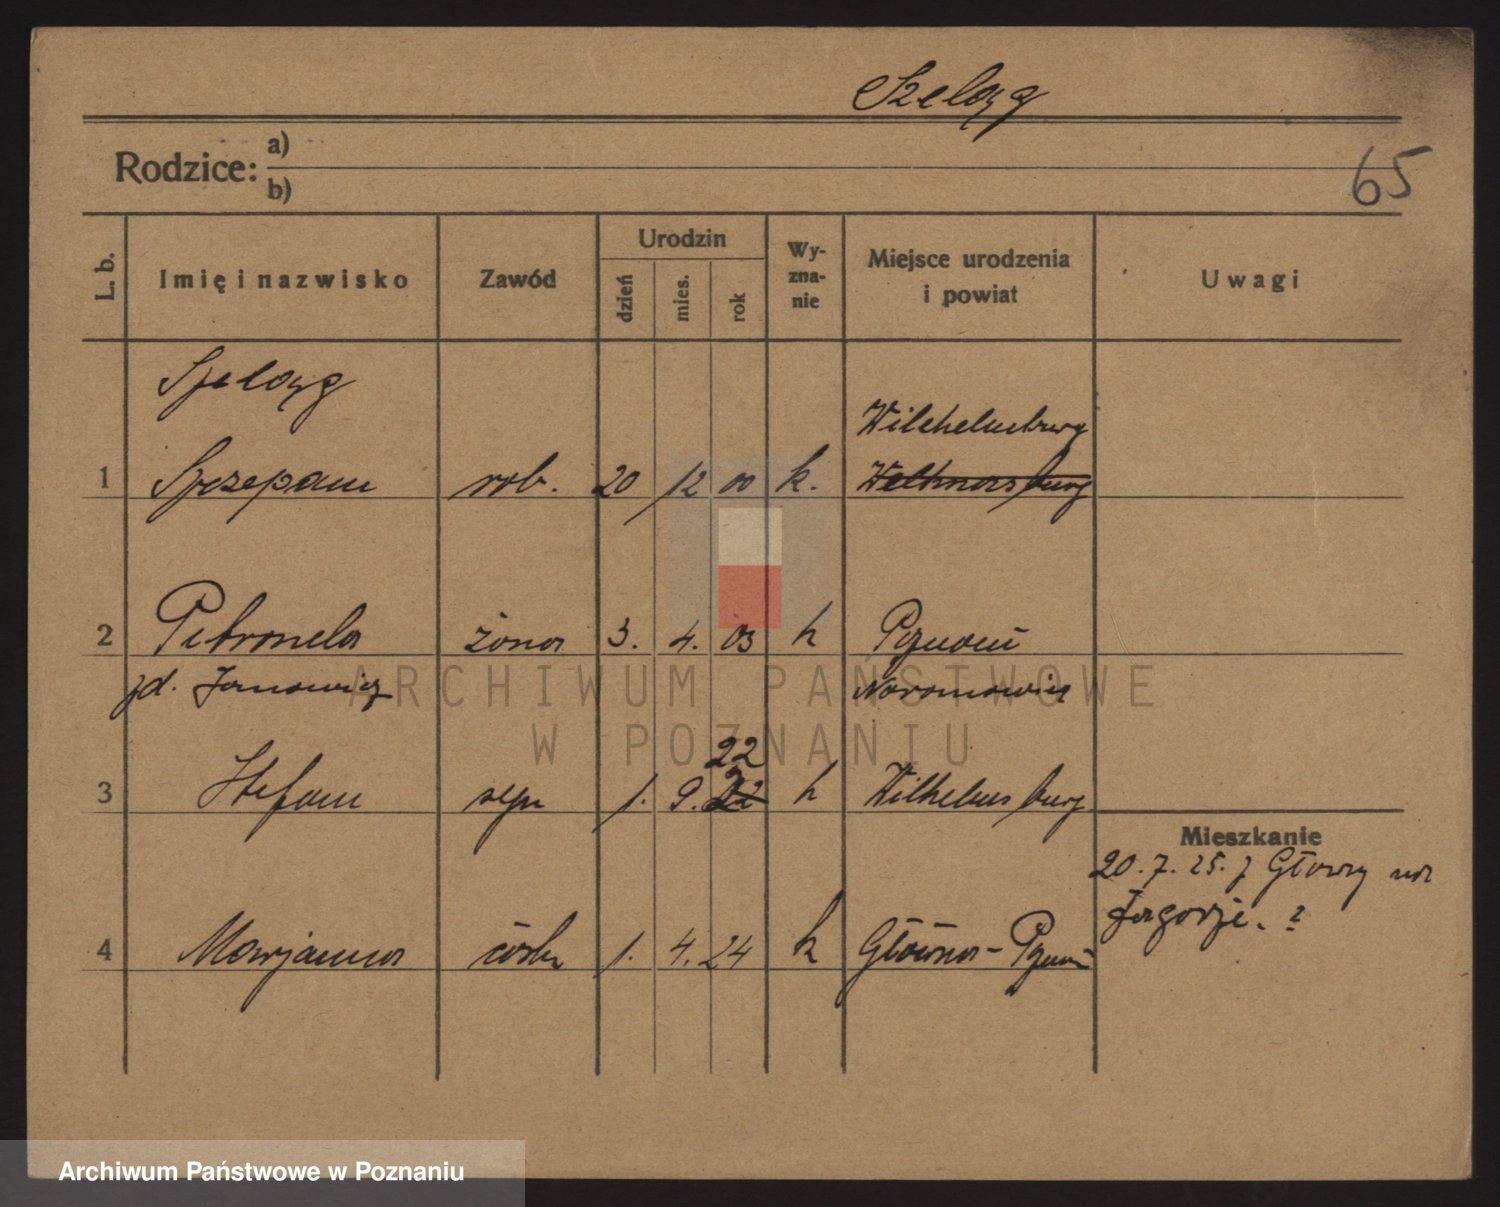 Szeląg
Rodzice: a)
b)
65
L. b.
Imię i nazwisko
Zawód
Urodzin
dzień
mies.
rok
Wy-
zna-
nie
Miejsce urodzenia
i powiat
Uwagi
Szeląg
Wilchelmsburg
1 Szczepan rob. 20 12 00 k.
2 Petronela żona 3. 4. 03 k Poznań
zd. Janowicz Naramowice
22
3 Stefan syn 1. 9. 22 k Wilhelmsburg
Mieszkanie
20. 7. 25. z Główny na
Zagorze. ?
4 Marjanna córka 1. 4. 24 k Główna - Poznań
ARCHIWUM PAŃSTWOWE
W POZNANIU
Archiwum Państwowe w Poznaniu